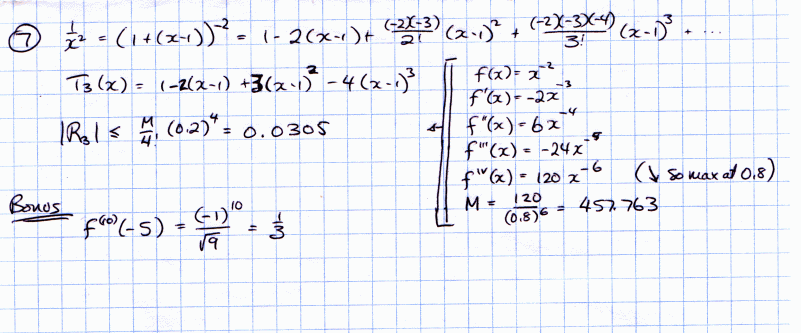 ⑦ 1/x² = (1+(x-1))⁻² = 1 - 2(x-1) + (-2)(-3)/2! (x-1)² + (-2)(-3)(-4)/3! (x-1)³ + ...
T₃(x) = 1-2(x-1) + 3(x-1)² - 4(x-1)³
|R₃| ≤ M/4! (0.2)⁴ = 0.0305
f(x) = x⁻²
f'(x) = -2x⁻³
f''(x) = 6x⁻⁴
f'''(x) = -24x⁻⁵
f^IV(x) = 120 x⁻⁶ (↓ so max at 0.8)
M = 120/(0.8)⁶ = 457.763
Bonus
f⁽¹⁰⁾(-5) = (-1)¹⁰/√9 = 1/3